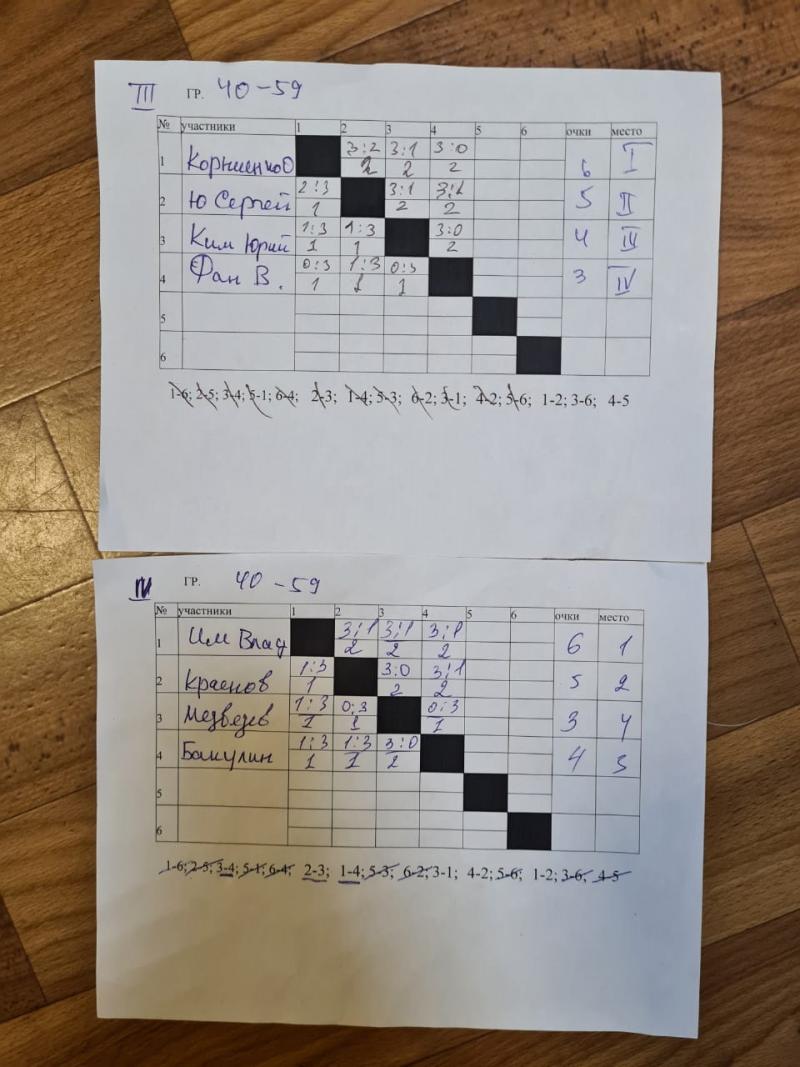 III ГР. 40-59
№ участники 1 2 3 4 5 6 очки место
1 Корниенко О 3:2 3:1 3:0 6 I
2 2 2
2 Ю Сергей 2:3 3:1 5 II
1 2 2
3 Ким Юрий 1:3 1:3 3:0 4 III
1 1 2
4 Фан В. 0:3 1:3 0:3 3 IV
1 1 1
5
6
1-6; 2-5; 3-4; 5-1; 6-4; 2-3; 1-4; 5-3; 6-2; 3-1; 4-2; 5-6; 1-2; 3-6; 4-5
IV ГР. 40-59
№ участники 1 2 3 4 5 6 очки место
1 Им Влад 3:1 3:1 6 1
2 2 2
2 Краснов 1:3 3:0 3:1 5 2
1 2 2
3 Медведев 1:3 0:3 0:3 3 4
1 1 1
4 Бакулин 1:3 1:3 3:0 4 3
1 1 2
5
6
1-6; 2-5; 3-4; 5-1; 6-4; 2-3; 1-4; 5-3; 6-2; 3-1; 4-2; 5-6; 1-2; 3-6; 4-5